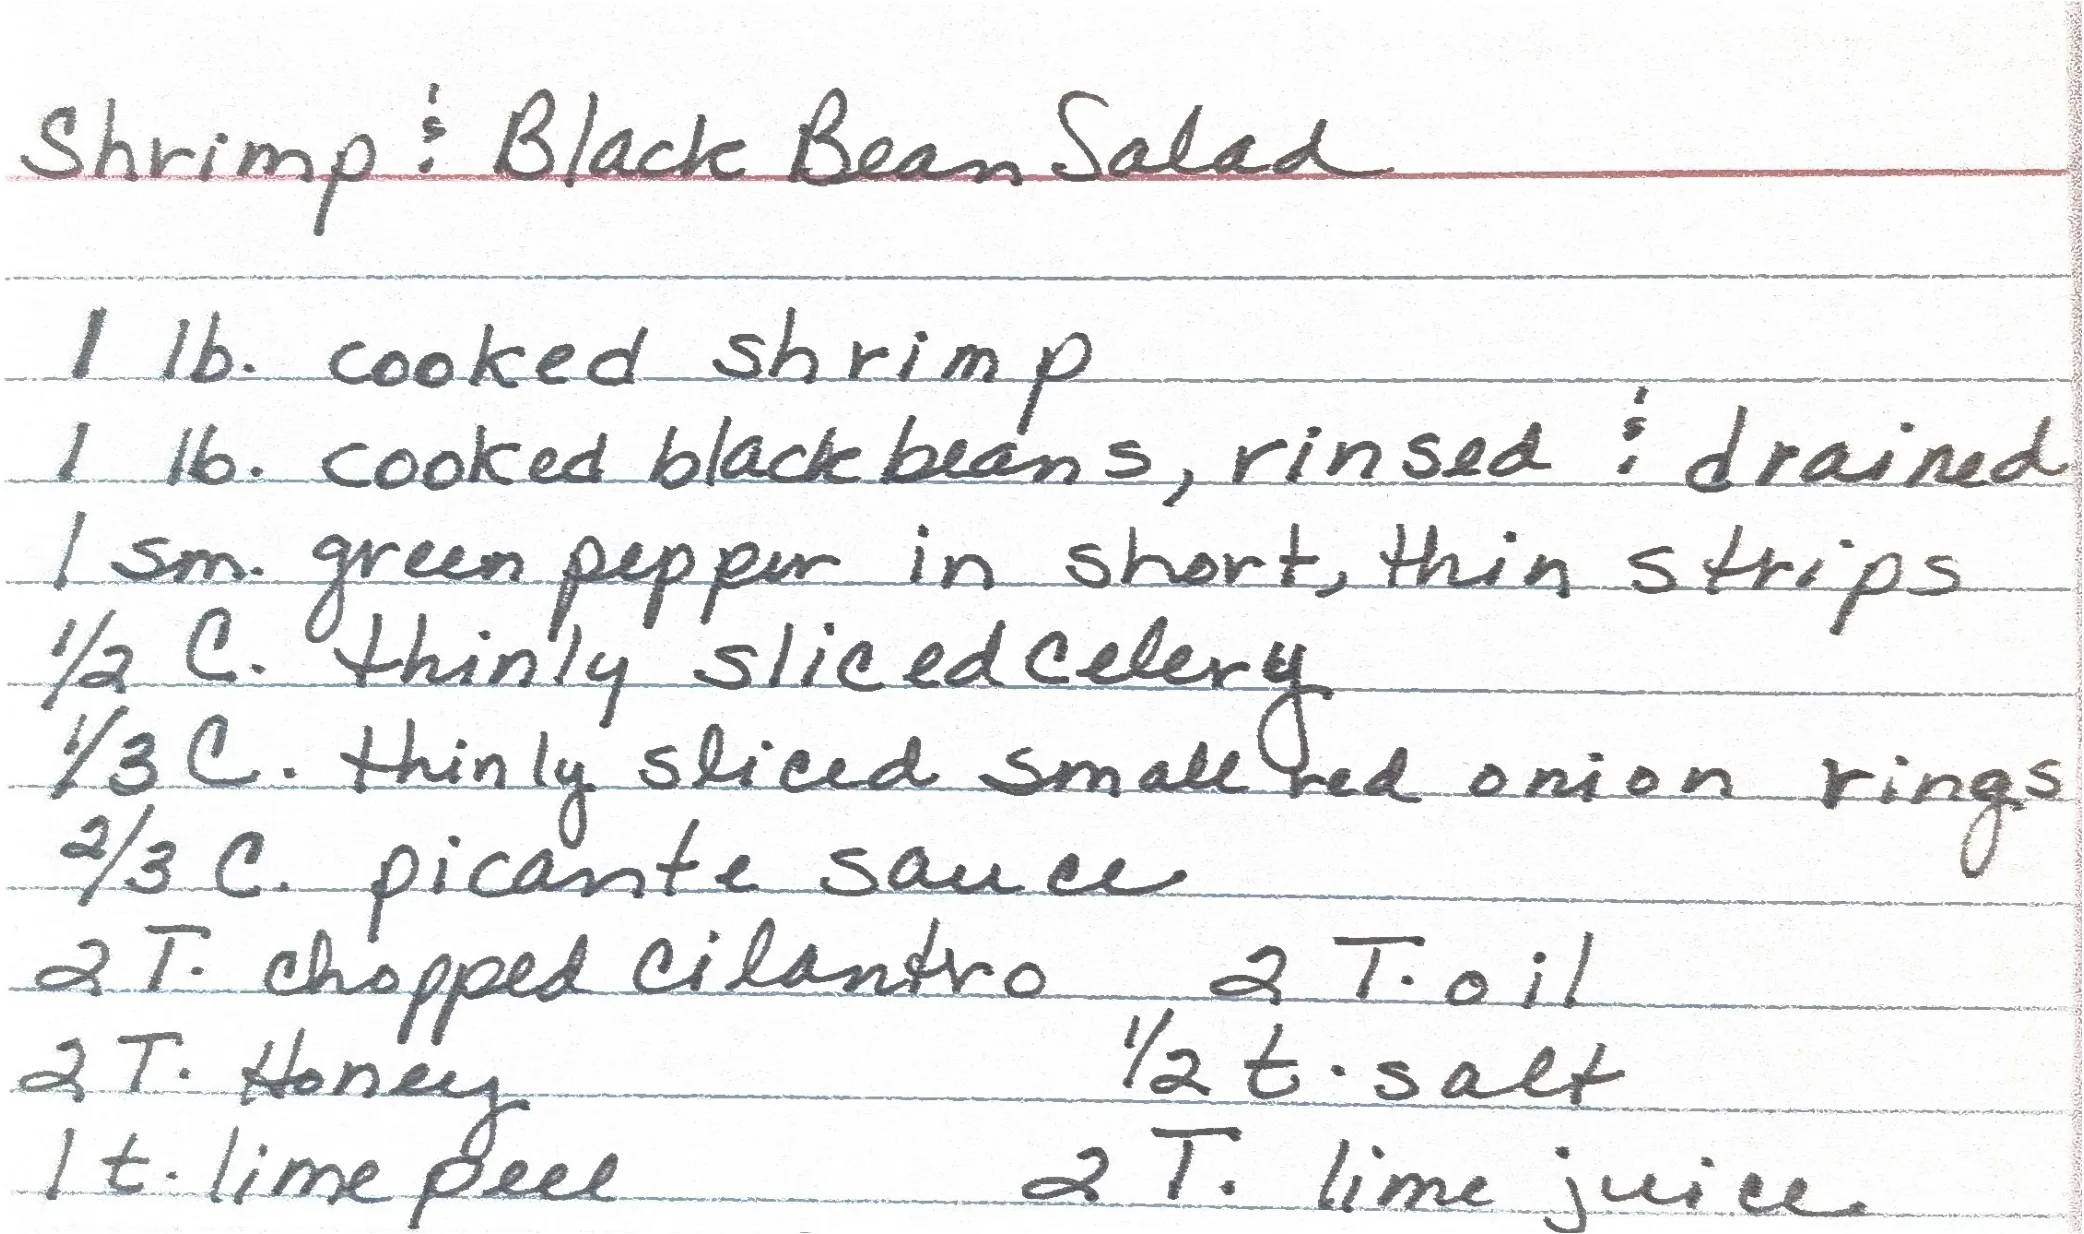 Shrimp & Black Bean Salad
1 lb. cooked shrimp
1 lb. cooked black beans, rinsed & drained
1 sm. green pepper in short, thin strips
1/2 C. thinly sliced celery
1/3 C. thinly sliced small red onion rings
2/3 C. picante sauce
2 T. chopped cilantro 2 T. oil
2 T. Honey 1/2 t. salt
1 t. lime peel 2 T. lime juice